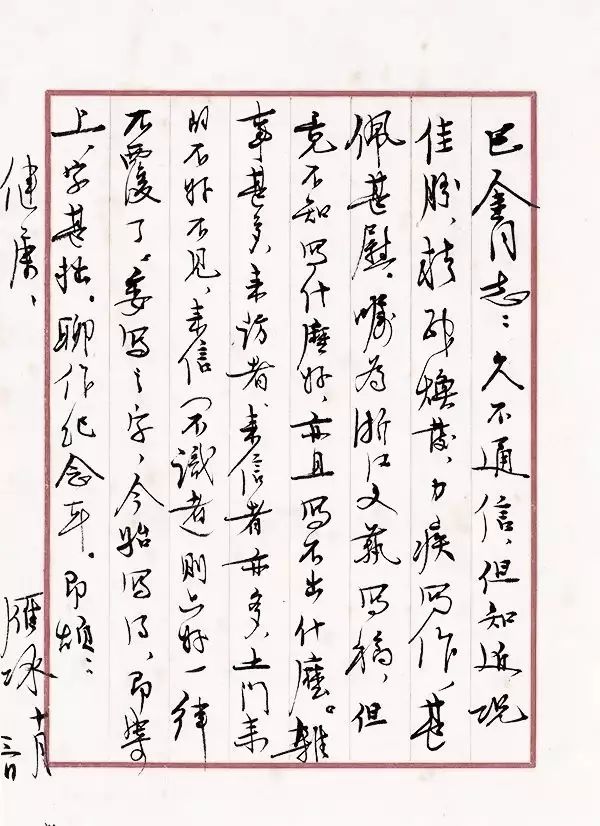 巴金同志：久不通信，但知近况
佳勝，精神焕發，力疾写作，甚
佩甚慰。嘱為浙江文藝写稿，但
竟不知写什麽好，亦且写不出什麽。雜
事甚多，来訪者、来信者亦多，上门来
的不好不见，来信（不識者）則只好一律
不覆了。委写之字，今始写得，即寄
上，字甚拙，聊作纪念耳。即頌：
健康，
雁冰 十月
三日